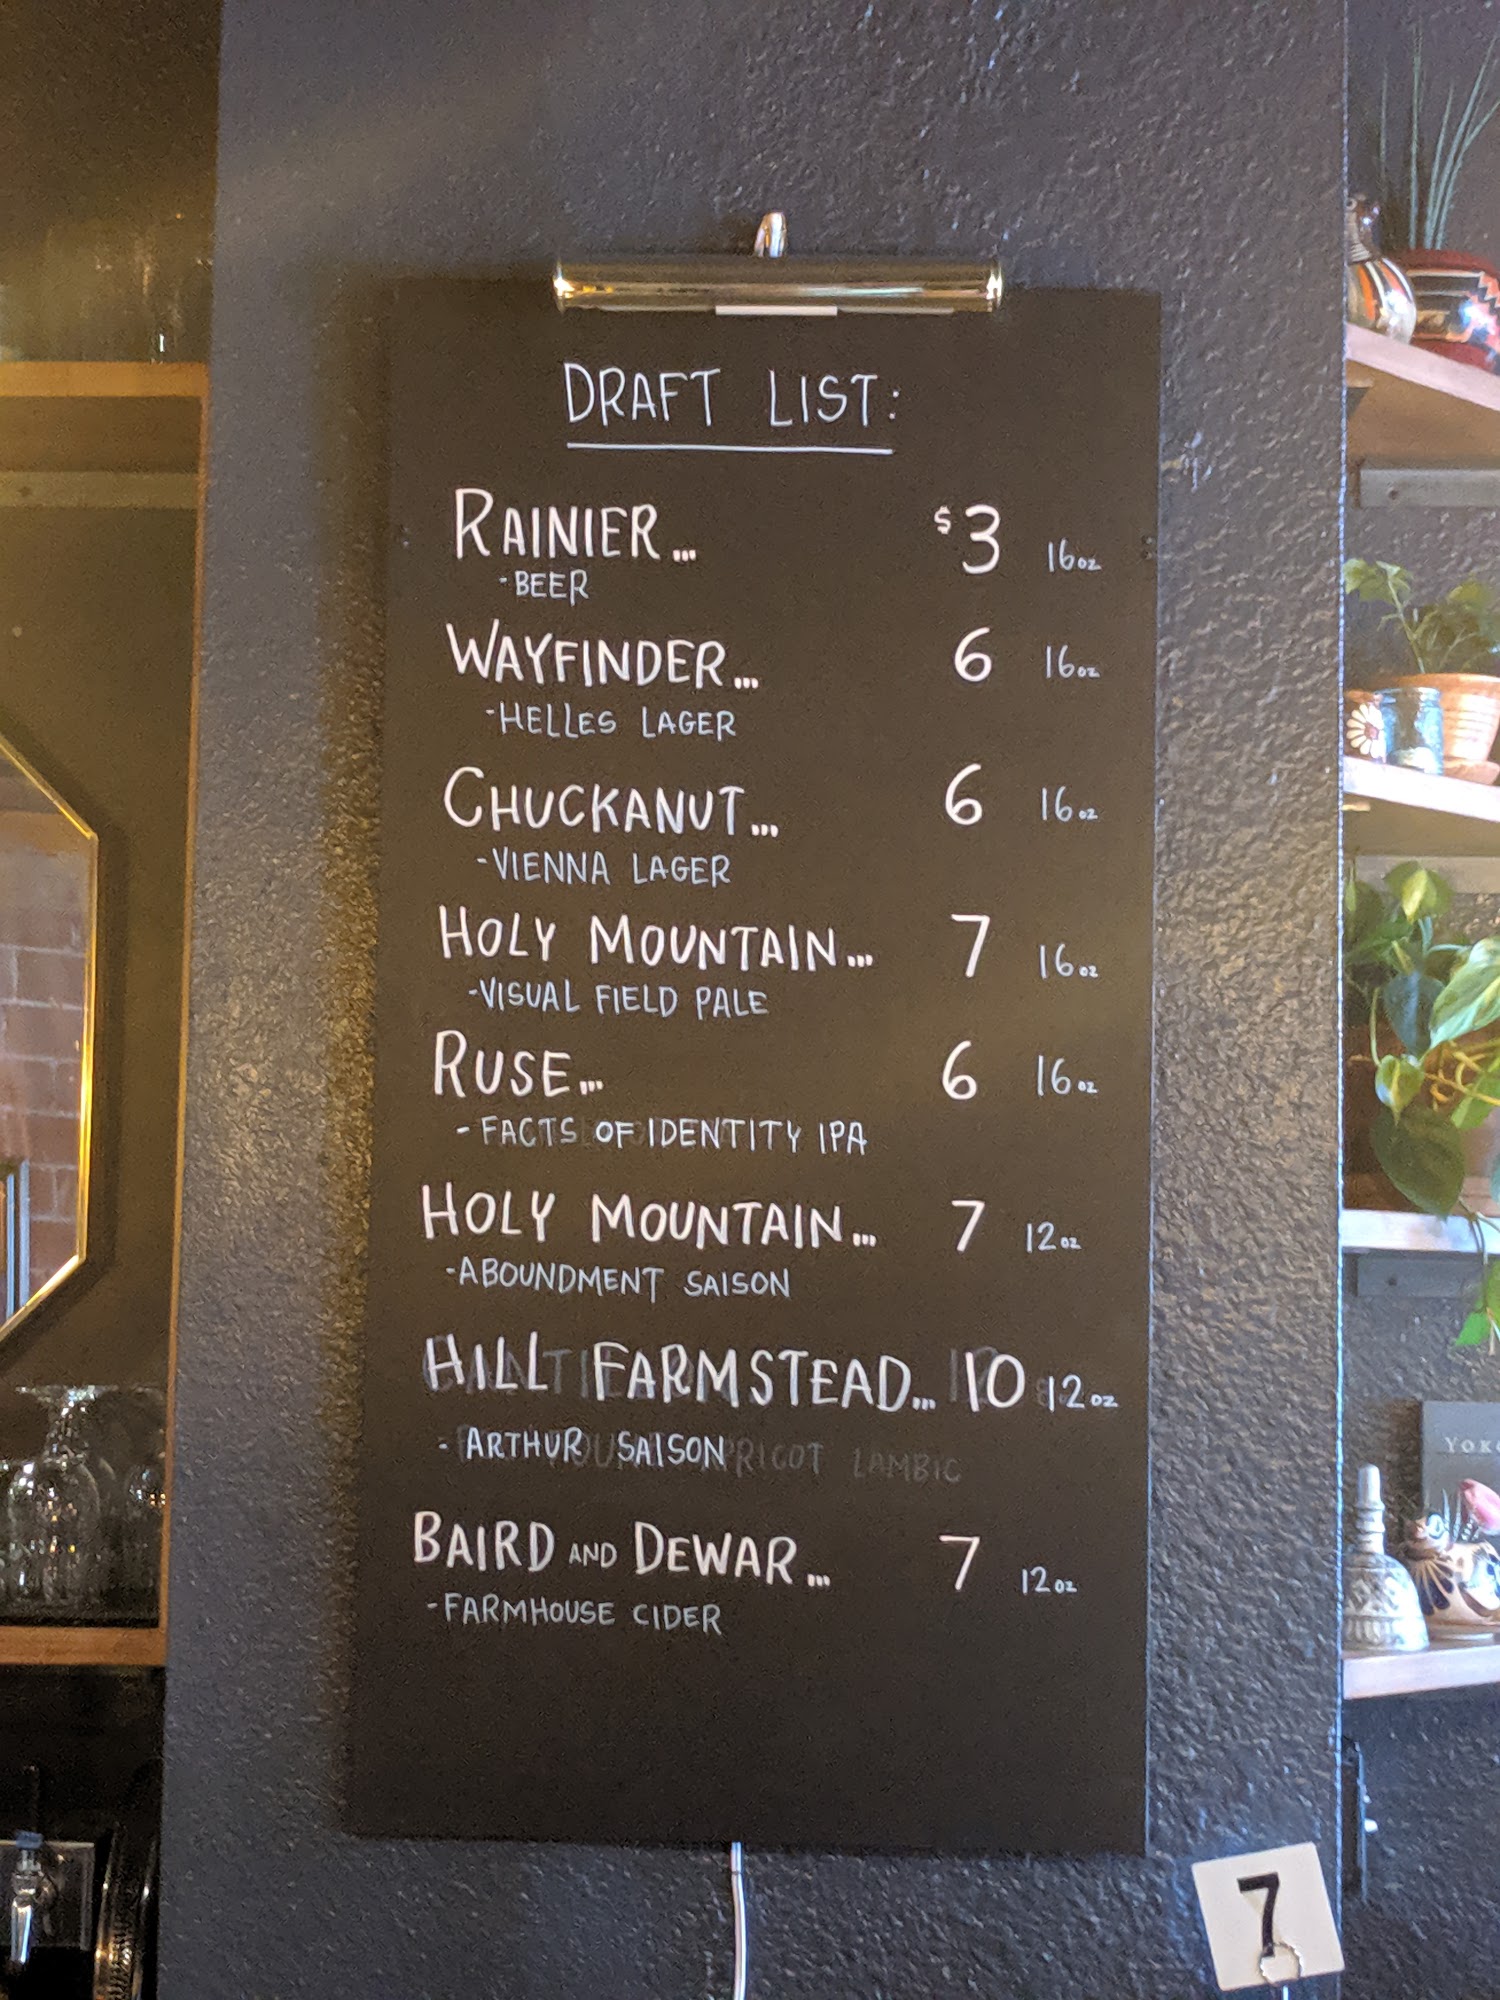 DRAFT LIST:
RAINIER... $3 16oz
-BEER
WAYFINDER... 6 16oz
-HELLES LAGER
CHUCKANUT... 6 16oz
-VIENNA LAGER
HOLY MOUNTAIN... 7 16oz
-VISUAL FIELD PALE
RUSE... 6 16oz
- FACTS OF IDENTITY IPA
HOLY MOUNTAIN... 7 12oz
-ABOUNDMENT SAISON
HILL FARMSTEAD... 10 12oz
- ARTHUR SAISON
APRICOT LAMBIC
BAIRD AND DEWAR... 7 12oz
-FARMHOUSE CIDER
7